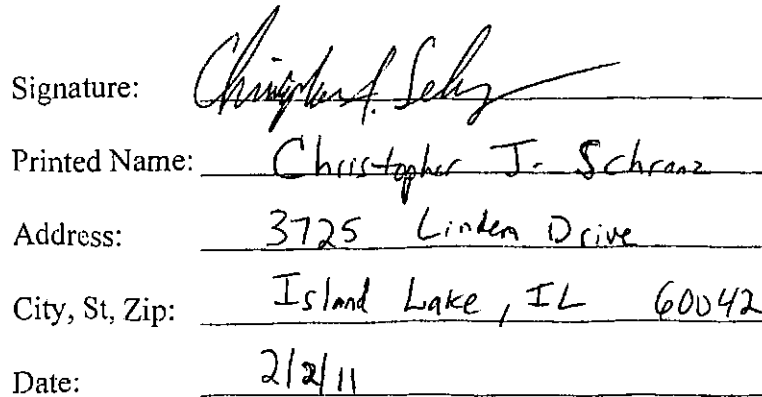 Signature: Christopher J. Schranz
Printed Name: Christopher J. Schranz
Address: 3725 Linden Drive
City, St, Zip: Island Lake, IL 60042
Date: 2/2/11